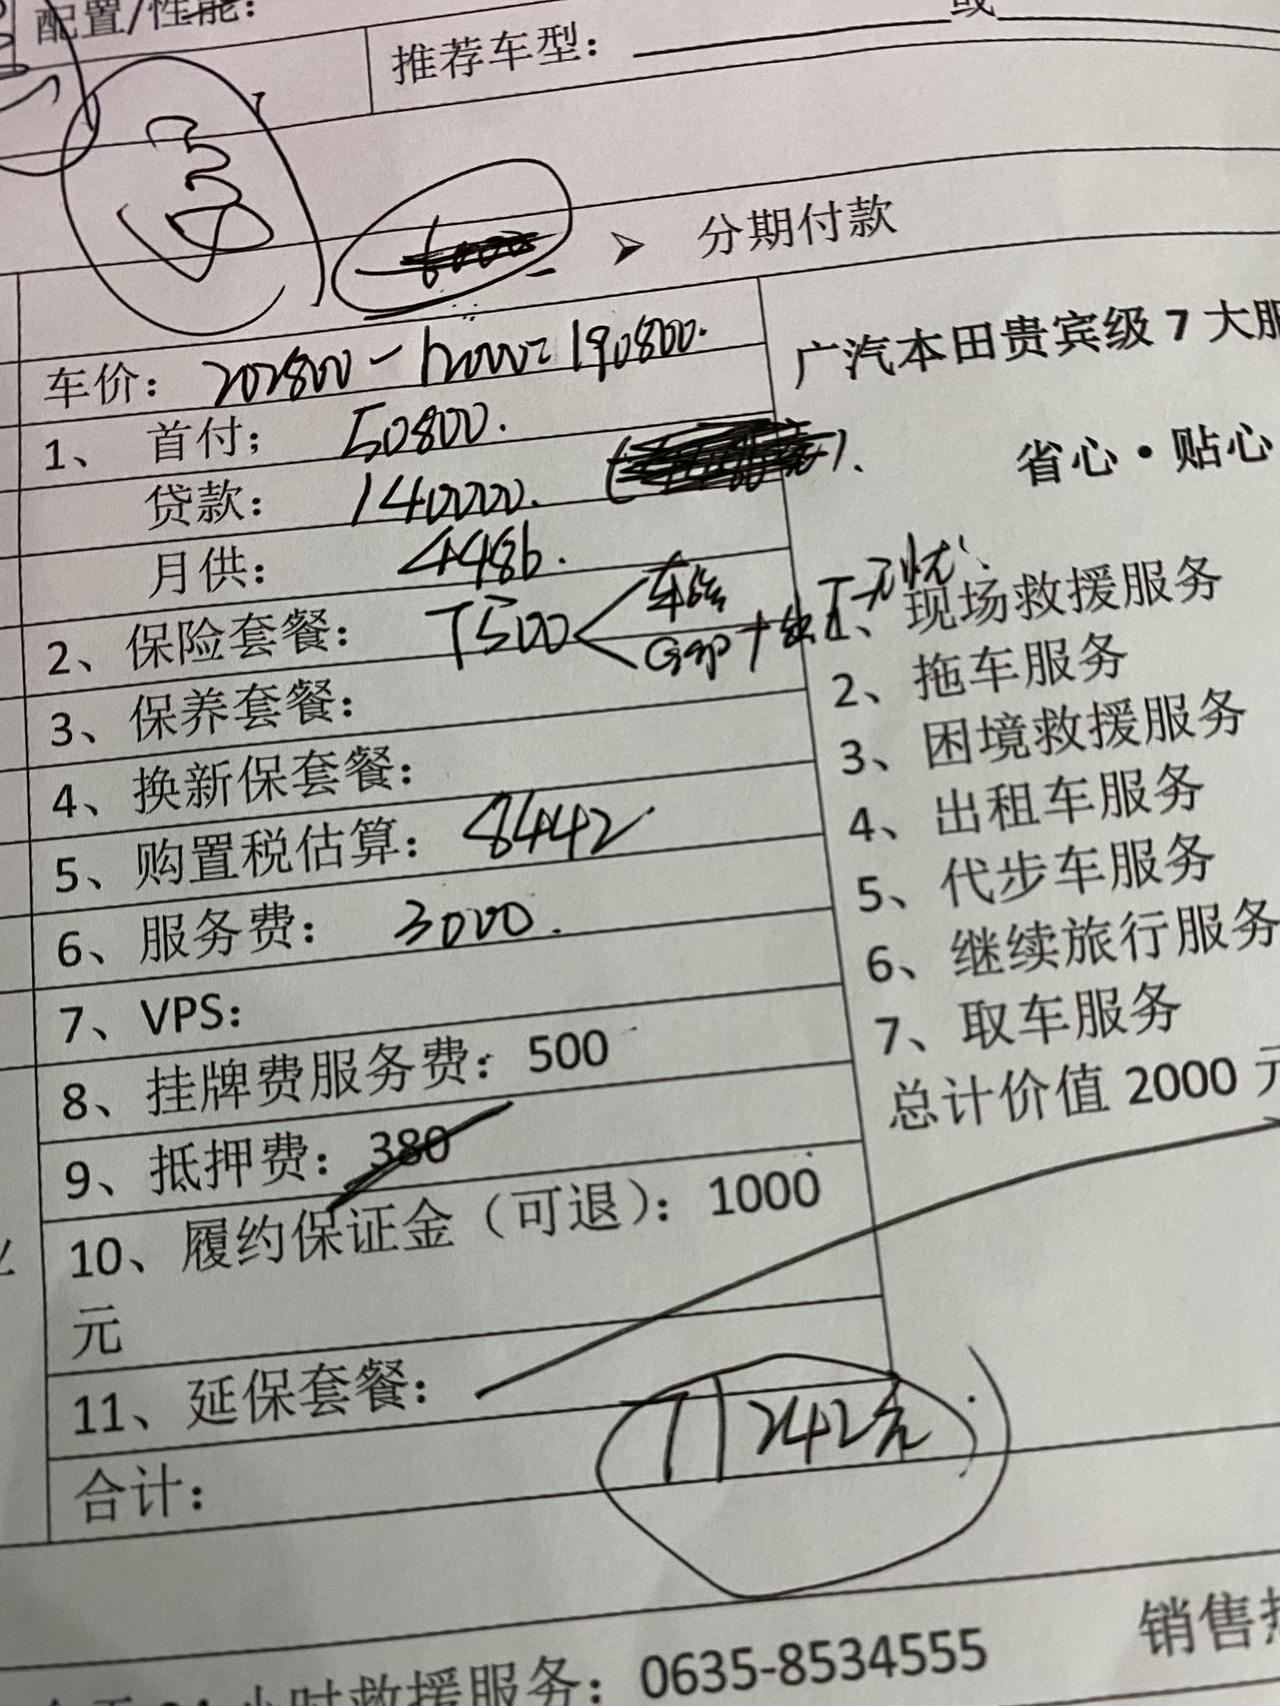 配置/性能：
推荐车型： 或
6000
➢ 分期付款
车价： 202800-12000=190800.
1、 首付； 50800.
贷款： 140000.
月供： 4486.
2、保险套餐： 7500 车险
Gap+
3、保养套餐：
4、换新保套餐：
5、购置税估算： 8442
6、服务费： 3000.
7、VPS：
8、挂牌费服务费：500
9、抵押费：380
10、履约保证金（可退）：1000
元
11、延保套餐：
合计： 71242元
广汽本田贵宾级 7 大服
省心·贴心
1、现场救援服务
2、拖车服务
3、困境救援服务
4、出租车服务
5、代步车服务
6、继续旅行服务
7、取车服务
总计价值 2000 元
小时救援服务：0635-8534555
销售热